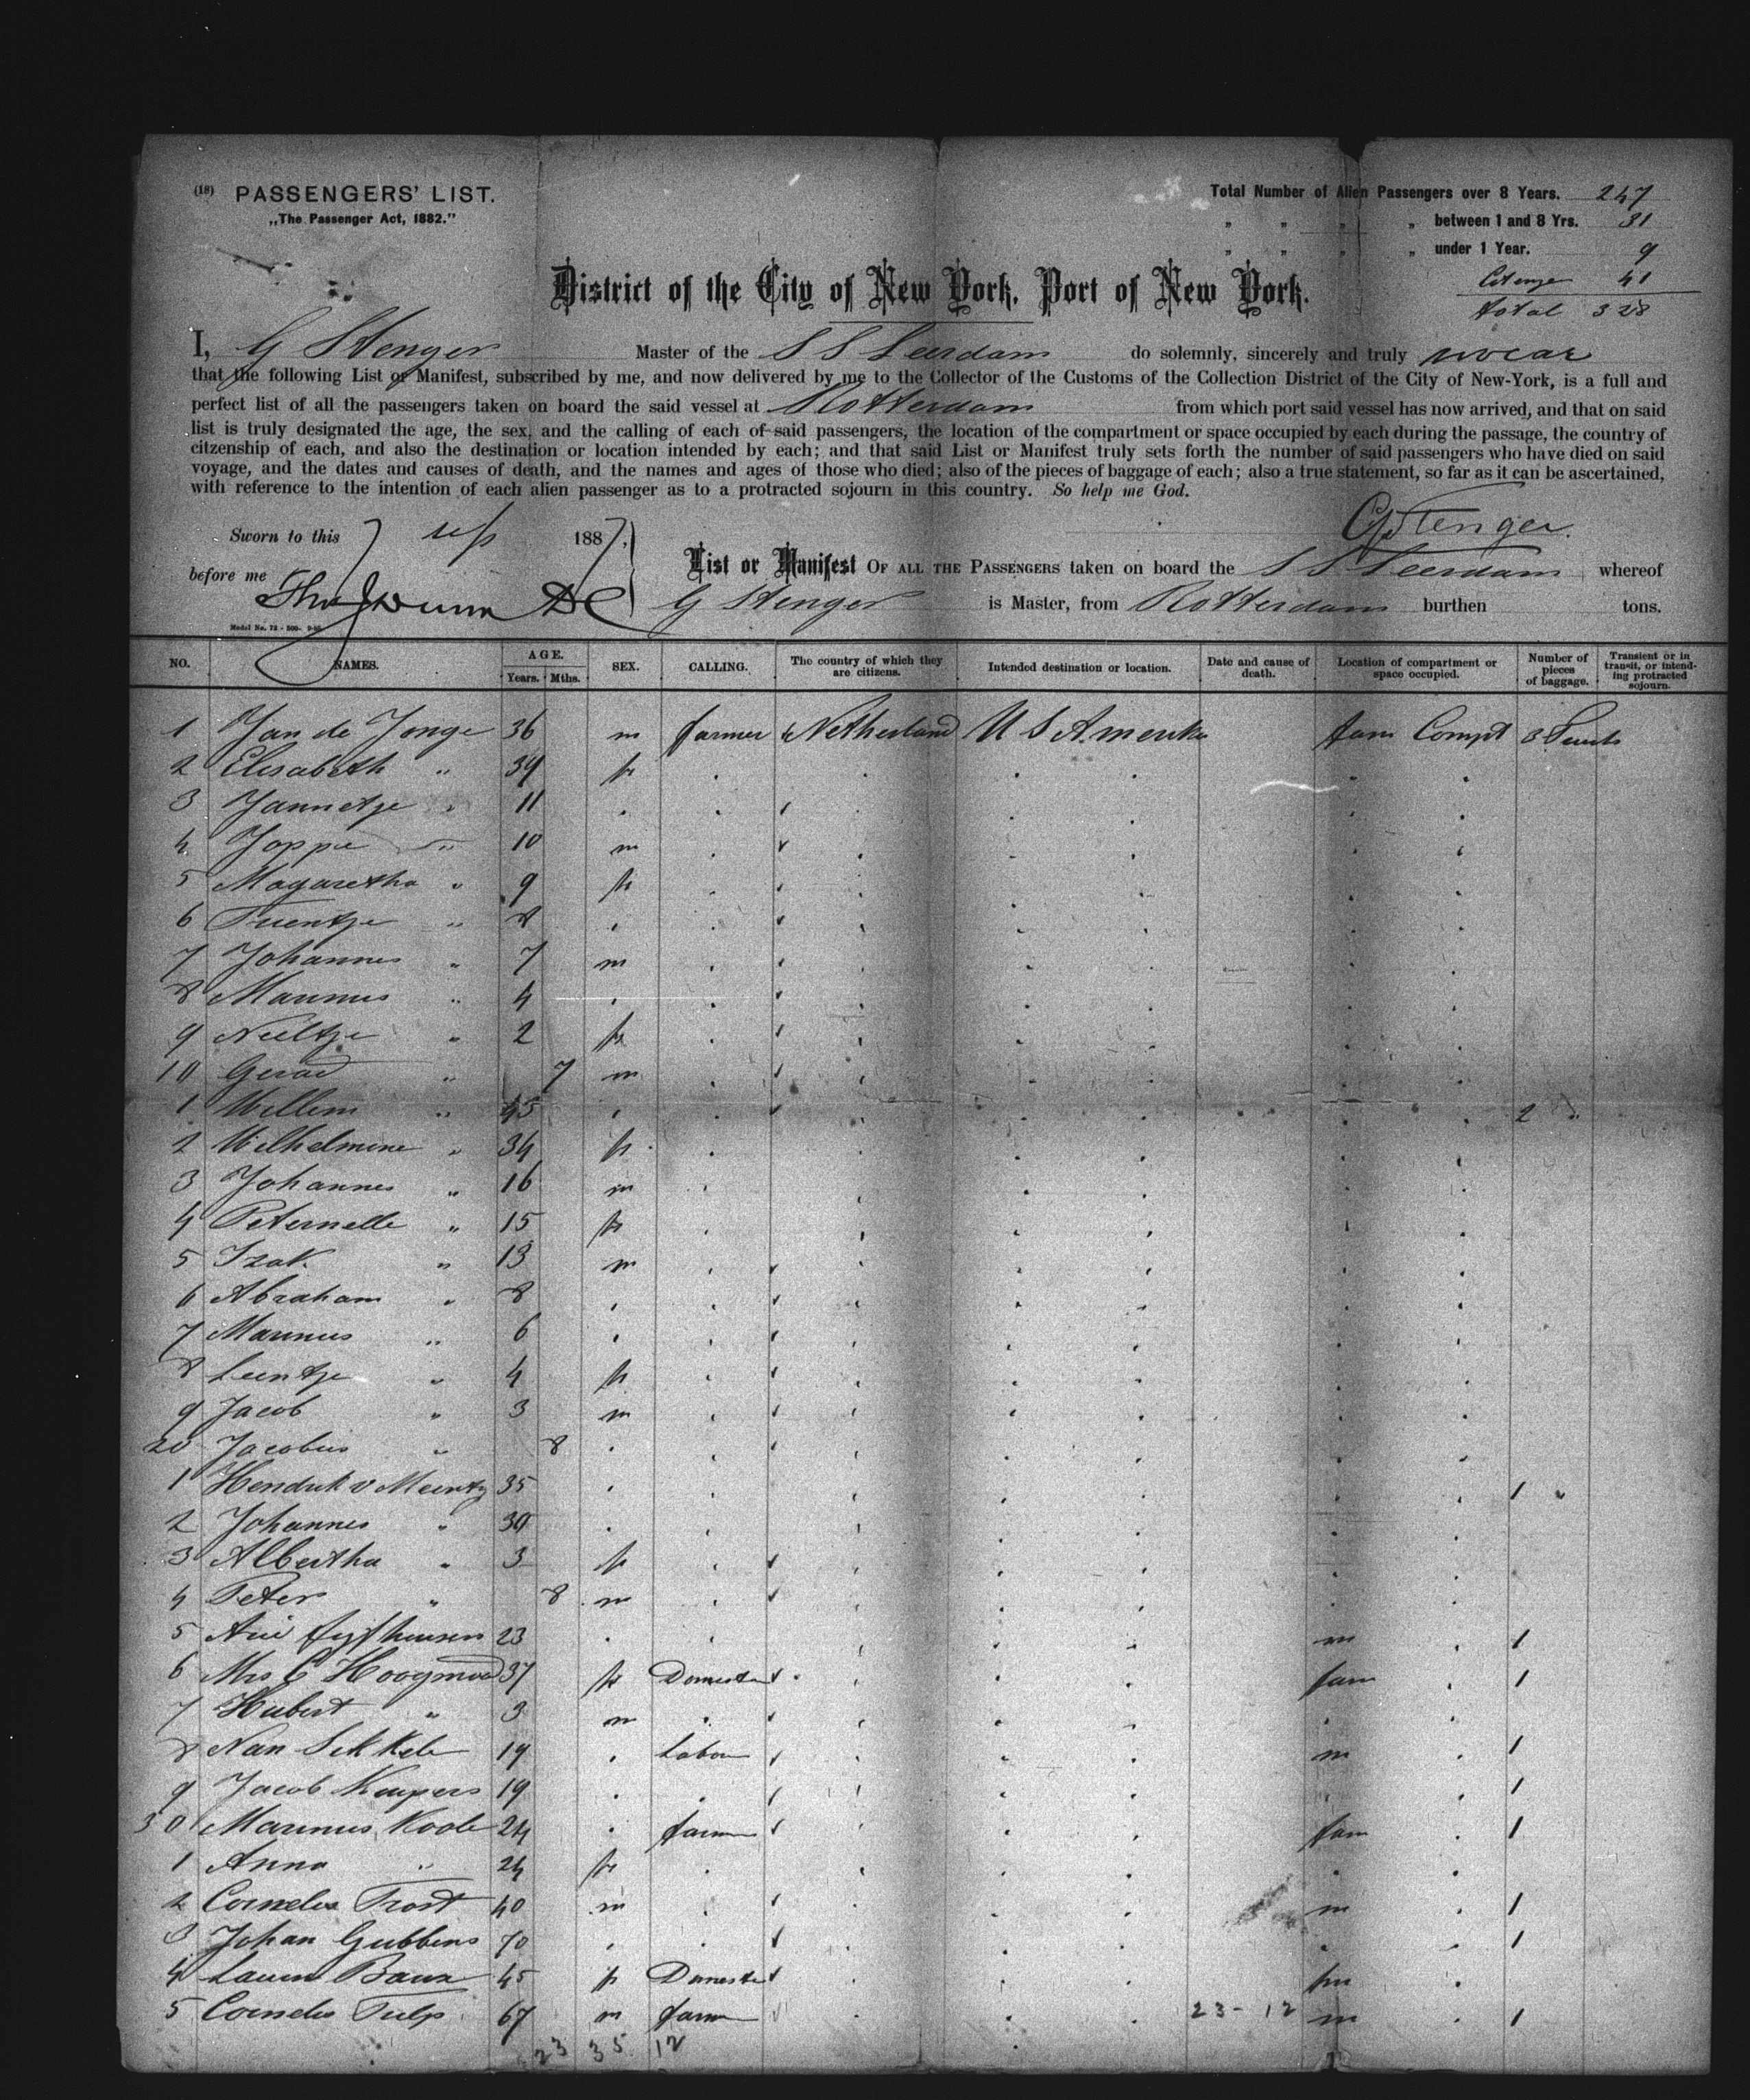 (18) PASSENGERS' LIST.
„The Passenger Act, 1882."
Total Number of Alien Passengers over 8 Years. 247
„ „ „ „ between 1 and 8 Yrs. 31
„ „ „ „ under 1 Year. 9
41
total 328
District of the City of New York, Port of New York.
I, G Stenger Master of the S S Leerdam do solemnly, sincerely and truly swear
that the following List or Manifest, subscribed by me, and now delivered by me to the Collector of the Customs of the Collection District of the City of New-York, is a full and
perfect list of all the passengers taken on board the said vessel at Rotterdam from which port said vessel has now arrived, and that on said
list is truly designated the age, the sex, and the calling of each of said passengers, the location of the compartment or space occupied by each during the passage, the country of
citzenship of each, and also the destination or location intended by each; and that said List or Manifest truly sets forth the number of said passengers who have died on said
voyage, and the dates and causes of death, and the names and ages of those who died; also of the pieces of baggage of each; also a true statement, so far as it can be ascertained,
with reference to the intention of each alien passenger as to a protracted sojourn in this country. So help me God.
G Stenger.
Sworn to this 7 1887,
before me
List or Manifest OF ALL THE PASSENGERS taken on board the S S Leerdam whereof
G Stenger is Master, from Rotterdam burthen tons.
NO. NAMES. AGE. Years. Mths. SEX. CALLING. The country of which they are citizens. Intended destination or location. Date and cause of death. Location of compartment or space occupied. Number of pieces of baggage. Transient or in transit, or intending protracted sojourn.
1 Jan de Jonge 36 m farmer Netherland U S Amerika fam Compt 3
2 Elisabeth " 39 f
3 Jannetje " 11
4 Joppe " 10 m
5 Magaretha " 9 f
6 " 8
7 Johannes " 7 m
8 Marinus " 4
9 Neeltje " 2 f
10 Gerad " 7 m
1 Willem " 45 2 "
2 Wilhelmine " 34 f
3 Johannes " 16 m
4 Peternelle " 15 f
5 Izak " 13 m
6 Abraham " 8
7 Marinus " 6
8 Leentje " 4 f
9 Jacob " 3 m
20 Jacobus " 8
1 Hendrik v 35 1 "
2 Johannes " 30
3 Albertha " 3 f
4 Peter " 8 m
5 Arie 23 m 1
6 Mrs C 37 f Domest fam 1
7 Hubert " 3 m
8 19 Labor m 1
9 Jacob Kuypers 19 1
30 Marinus Koole 24 farm fam 1
1 Anna " 24 f
2 Cornelis Trost 40 m m 1
3 Johan Gubbens 70 1
4 45 f Domest fm
5 Cornelis Tulp 67 m farm 23-12 m 1
23 35 12